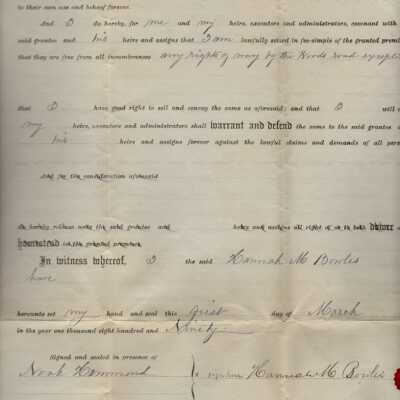 to their own use and behoof forever.
And I do hereby, for me and my heirs, executors and administrators, covenant with
said grantee and his heirs and assigns that I am lawfully seized in fee-simple of the granted premi
that they are free from all incumbrances any rights of way by the Woods road excepte
that I have good right to sell and convey the same as aforesaid; and that I will a
my heirs, executors and administrators shall warrant and defend the same to the said grantee a
his heirs and assigns forever against the lawful claims and demands of all perso
And for the consideration aforesaid
do hereby release unto the said grantee and heirs and assigns all right of or to both dower a
homestead in the granted premises.
In witness whereof, I the said Hannah M Bowles
have
hereunto set my hand and seal this first day of March
in the year one thousand eight hundred and Ninety.
Signed and sealed in presence of
Noah Hammond Hannah M Bowles